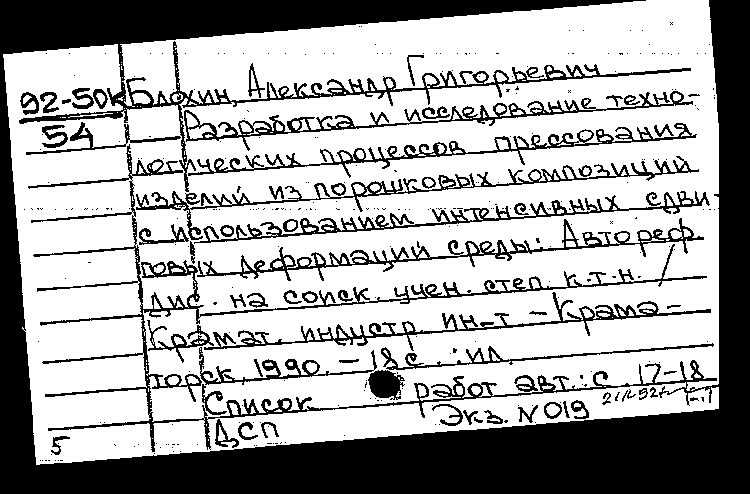 92-50К Блохин, Александр Григорьевич
54 Разработка и исследование техно-
логических процессов прессования
изделий из порошковых композиций
с использованием интенсивных сдви-
говых деформаций среды: Автореф.
дис. на соиск. учен. степ. к.т.н. /
Крамат. индустр. ин-т - Крама-
торск, 1990. - 18 с. : ил.
Список работ авт.: с. 17-18
ДСП Экз. N 019
5